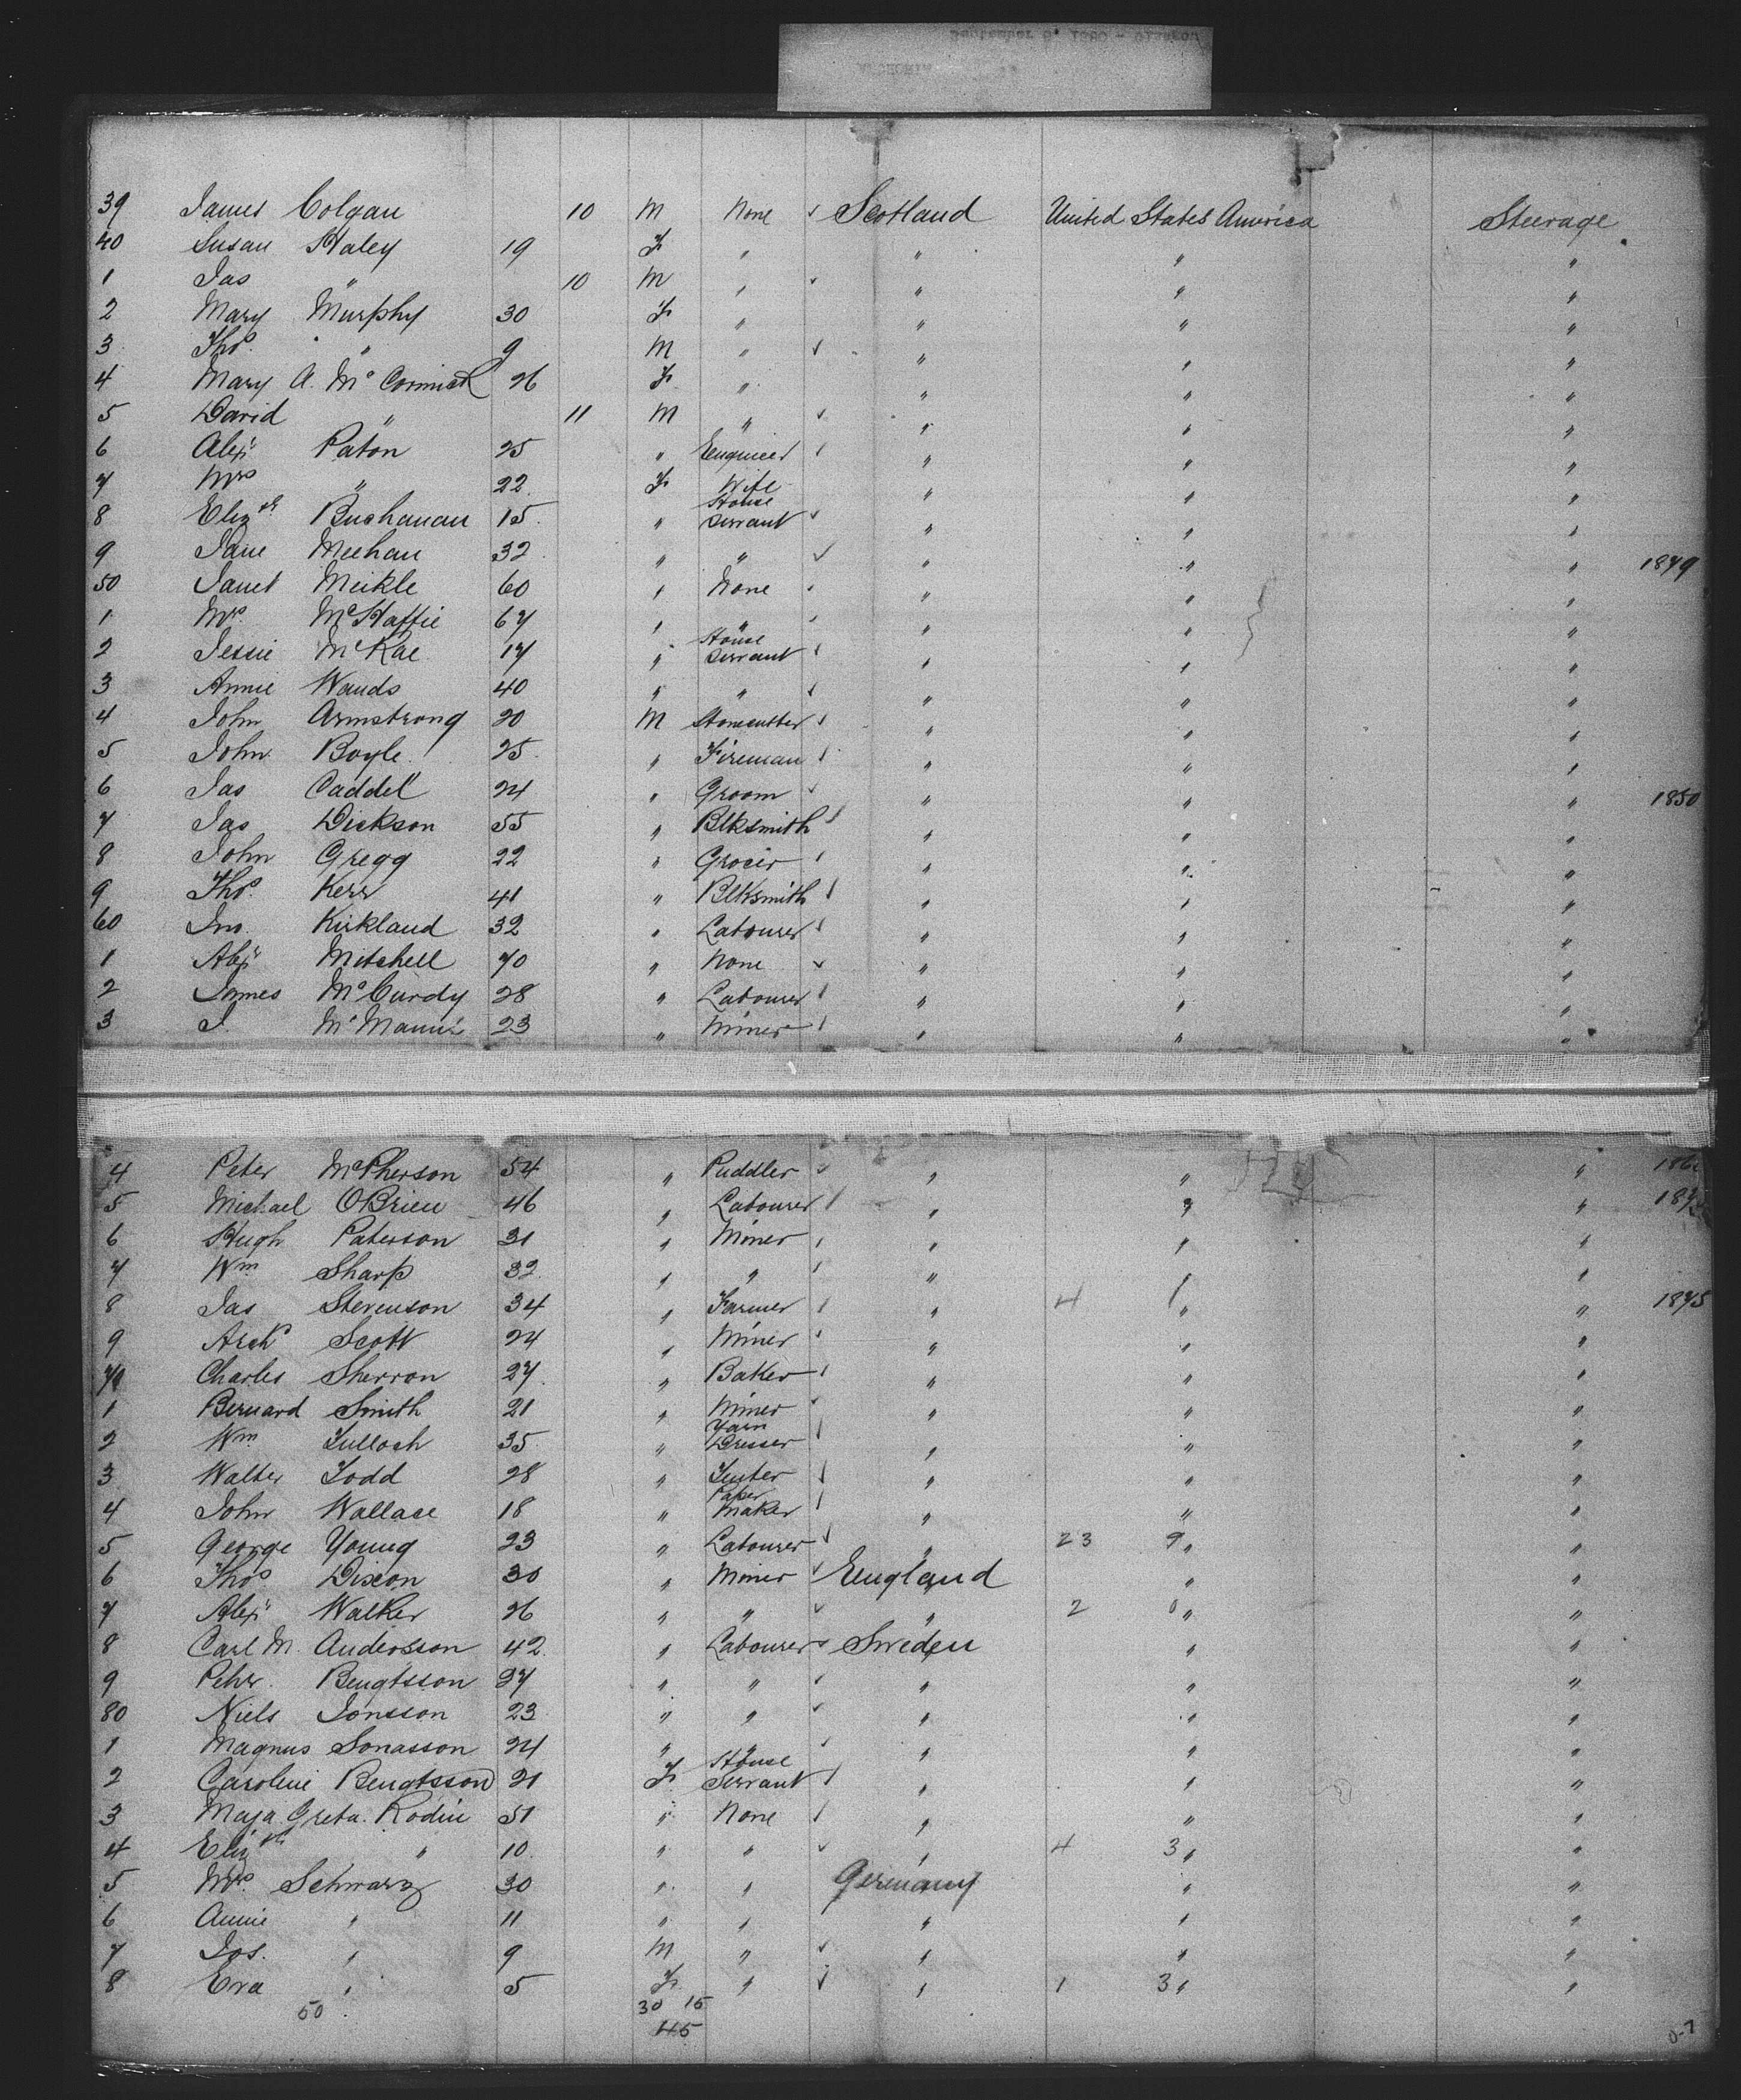 39 James Colgan 10 M None ✓ Scotland United States America Steerage
40 Susan Haley 19 F " " " "
1 Jas " 10 M " ✓ " " "
2 Mary Murphy 30 F " " " "
3 Thos. " 9 M " ✓ " " "
4 Mary A. McCormick 26 F " " " "
5 David " 11 M " ✓ " " "
6 Alexr Paton 25 " Engineer ✓ " " "
7 Mrs " 22 F Wife " " "
8 Elizth Buchanan 15 " House Servant ✓ " " "
9 Jane Meehan 32 " " ✓ " " " 1849
50 Janet Meikle 60 " None " " "
1 Mrs McHaffie 67 " " " " "
2 Jessie McRae 17 " House Servant " " "
3 Annie Wands 40 " " ✓ " " "
4 John Armstrong 20 M Stonecutter ✓ " " "
5 John Boyle 25 " Fireman ✓ " " "
6 Jas Caddel 24 " Groom ✓ " " " 1850
7 Jas Dickson 55 " Blksmith ✓ " " "
8 John Gregg 22 " Grocer ✓ " " "
9 Thos. Kerr 41 " Blksmith ✓ " " "
60 Jno. Kirkland 32 " Labourer ✓ " " "
1 Alexr Mitchell 70 " None ✓ " " "
2 James McCurdy 28 " Labourer ✓ " " "
3 J. 23 " Miner ✓ " " "
4 Peter McPherson 54 " Puddler ✓ " " "
5 Michael OBrien 46 " Labourer ✓ " " "
6 Hugh Paterson 31 " Miner ✓ " " "
7 Wm Sharp 32 " " ✓ " " "
8 Jas Stevenson 34 " Farmer ✓ " 4 1 " " 1875
9 Arch Scott 24 " Miner ✓ " " "
70 Charles Sherron 27 " Baker ✓ " " "
1 Bernard Smith 21 " Miner ✓ " " "
2 Wm Tulloch 35 " Yarn Dresser ✓ " " "
3 Walter Todd 28 " Tenter ✓ " " "
4 John Wallace 18 " Paper Maker ✓ " " "
5 George Young 23 " Labourer ✓ " 23 9 " "
6 Thos Dixon 30 " Miner ✓ England " "
7 Alexr Walker 26 " " ✓ " 2 0 " "
8 Carl M. Andersson 42 " Labourer ✓ Sweden " "
9 Pehr. Bengtsson 27 " " ✓ " " "
80 Niels Jonsson 23 " " ✓ " " "
1 Magnus Jonasson 24 " " ✓ " " "
2 Caroline Bengtsson 21 F House Servant ✓ " " "
3 Maja Greta. Rodin 51 " None ✓ " " "
4 Elizth " 10 " " ✓ " 4 3 " "
5 Mrs. Schwarz 30 " " Germany " "
6 Annie " 11 " " " " "
7 Jos. " 9 M " ✓ " " "
8 Eva " 5 F " ✓ " 1 3 " "
50 30 15
45
0-7